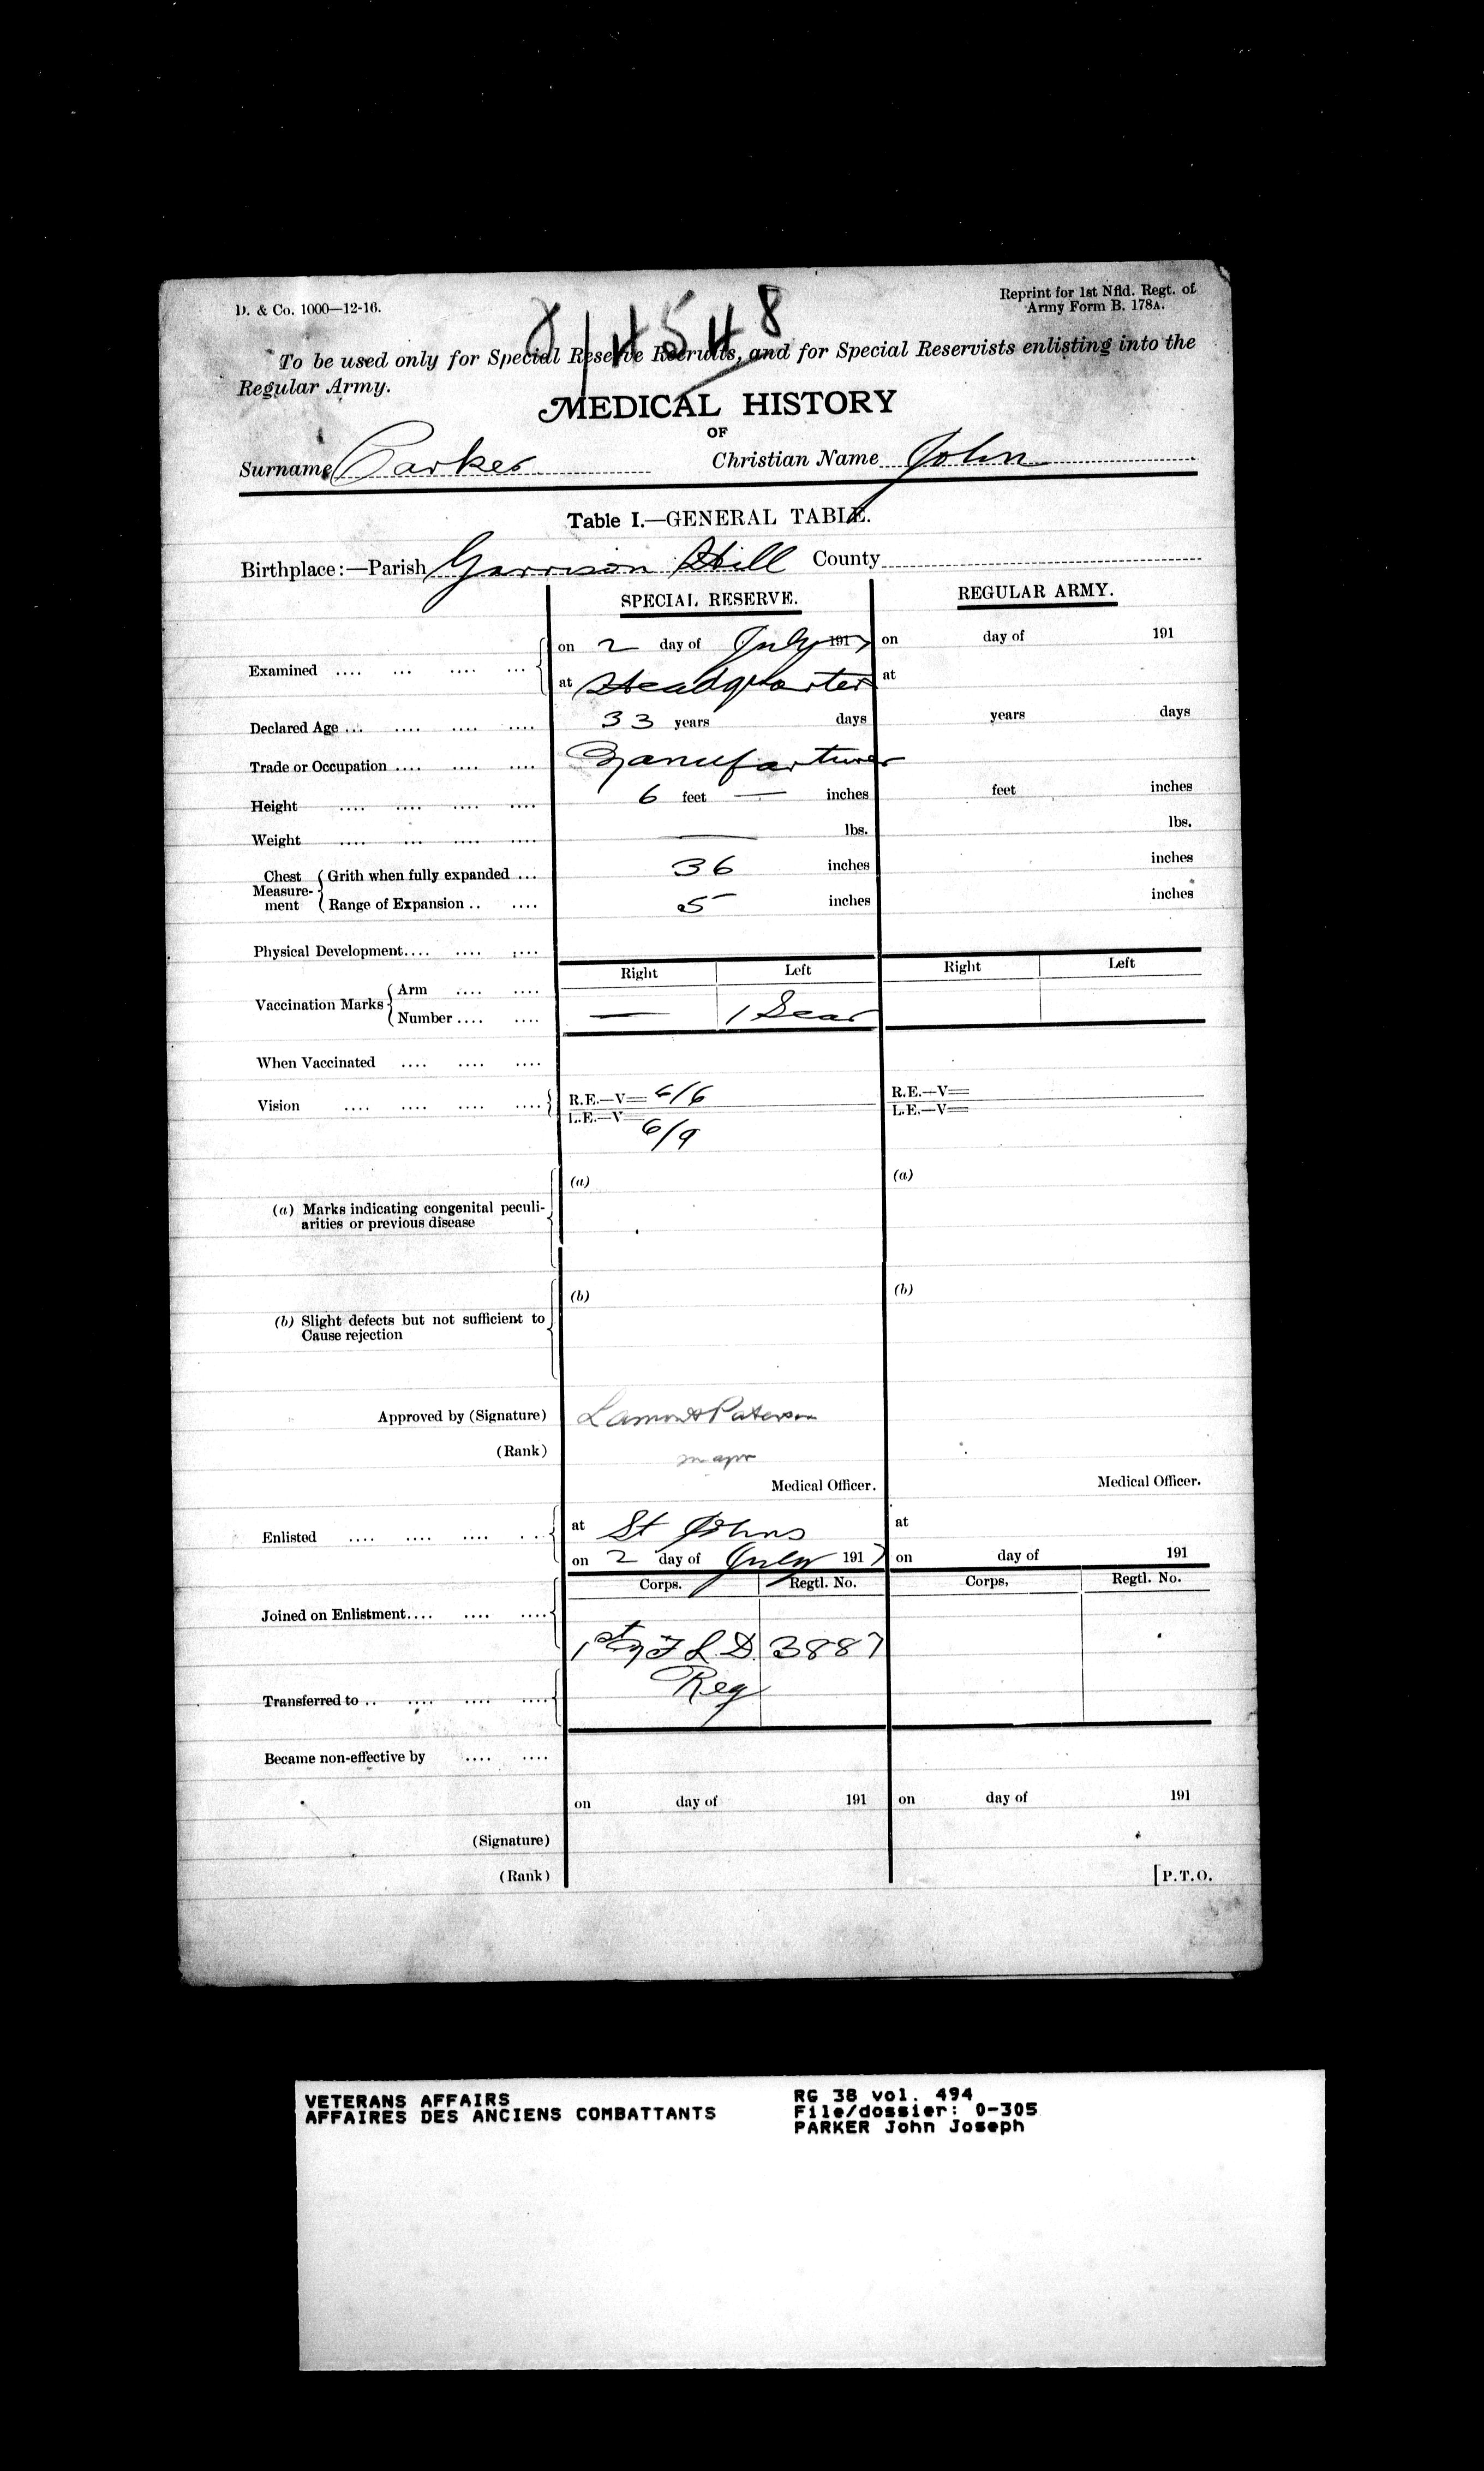 D. & Co. 1000—12-16.
Reprint for 1st Nfld. Regt. of
Army Form B. 178A.
To be used only for Special Reserve Recruits, and for Special Reservists enlisting into the
Regular Army.
MEDICAL HISTORY
OF
Surname Parker Christian Name John
Table I.—GENERAL TABLE.
Birthplace:—Parish Garrison Hill County
SPECIAL RESERVE. REGULAR ARMY.
Examined .... ... .... ... on 2 day of July 1917 on day of 191
at Headquarters at
Declared Age ... .... .... .... 33 years days years days
Trade or Occupation .... .... .... Manufacturer
Height .... .... .... .... 6 feet — inches feet inches
Weight .... ... .... .... — lbs. lbs.
Chest Measure-ment Grith when fully expanded ... 36 inches inches
Range of Expansion .. .... 5 inches inches
Physical Development.... .... ....
Right Left Right Left
Vaccination Marks Arm .... ....
Number .... .... — 1 Scar
When Vaccinated .... .... ....
Vision .... .... .... .... R.E.—V= 6/6 R.E.—V=
L.E.—V= 6/9 L.E.—V=
(a) (a)
(a) Marks indicating congenital peculi-
arities or previous disease
(b) (b)
(b) Slight defects but not sufficient to
Cause rejection
Approved by (Signature) Lamont Paterson
(Rank) Major
Medical Officer. Medical Officer.
Enlisted .... .... .... .. at St Johns at
on 2 day of July 1917 on day of 191
Corps. Regtl. No. Corps, Regtl. No.
Joined on Enlistment.... .... ....
1st NFLD 3887
Reg
Transferred to .. .... .... ....
Became non-effective by .... ....
on day of 191 on day of 191
(Signature)
(Rank)
[P.T.O.
VETERANS AFFAIRS
AFFAIRES DES ANCIENS COMBATTANTS
RG 38 vol. 494
File/dossier: 0-305
PARKER John Joseph